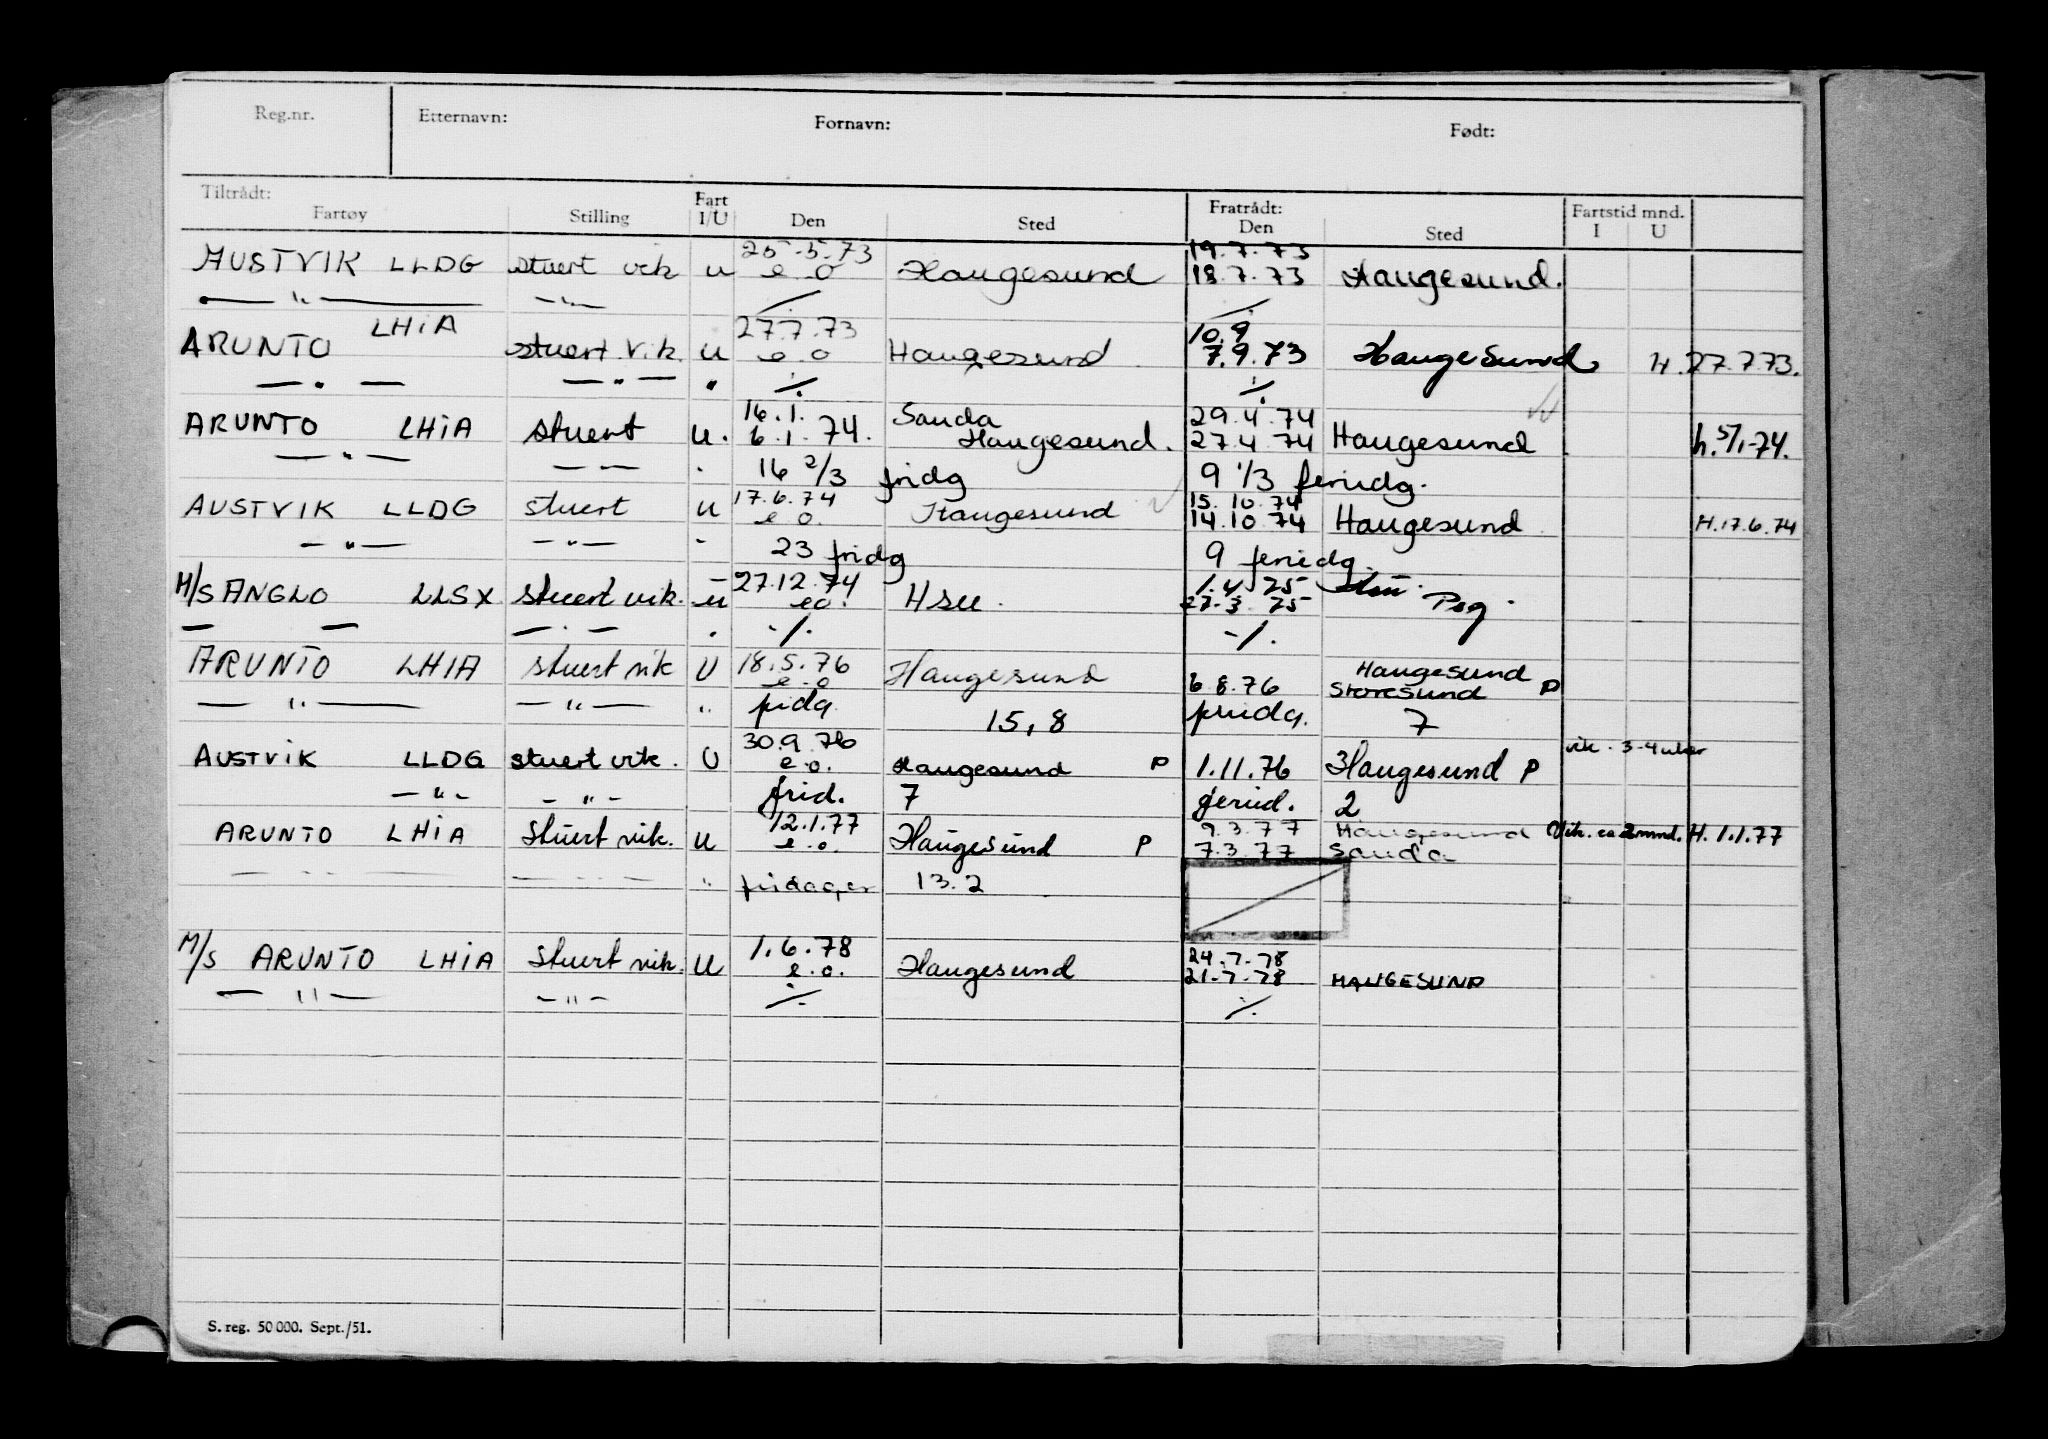 Reg.nr. Etternavn: Fornavn: Født:
Tiltrådt: Fratrådt: Fartstid mnd.
Fartøy Stilling Fart I/U Den Sted Den Sted I U
25.5.73 19.7.73
AUSTVIK LLDG stuert vik u e.o Haugesund 18.7.73 Haugesund.
— " — — " — ./. ./.
LHiA 27.7.73 10.9
ARUNTO stuert vik. u e o Haugesund 7.9.73 Haugesund H. 27.7.73.
— " — — " — " ./. ./.
16.1. Sauda 29.4.74
ARUNTO LHiA stuert u. 6.1.74. Haugesund. 27.4.74 Haugesund h. 5/1-74.
— " — — " — 16 2/3 fridg 9 1/3 feriedg.
17.6.74 15.10.74
AUSTVIK LLDG stuert u e o. Haugesund 14.10.74 Haugesund H. 17.6.74
— " — — " — 23 fridg 9 feriedg.
27.12.74 1.4.75
M/S ANGLO LLSX stuert vik. u eo. Hsu. 27.3.75 Psg.
— — — . — . -/. -/.
ARUNTO LHIA stuert vik U 18.5.76 Haugesund Haugesund
e.o 6.8.76 Storesund P
— " — — " — " fridg. 15,8 friedg. 7
30.9.76 vik. 3-4 uker
AUSTVIK LLDG stuert vik. U e.o. Haugesund P 1.11.76 Haugesund P
— " — — " — frid. 7 feried. 2
12.1.77 9.3.77 Haugesund Vik. ca 2 mnd. H. 1.1.77
ARUNTO LHiA Stuert vik. u e.o. Haugesund P 7.3.77 Sauda
— " — — " — " fridager 13.2
1.6.78 24.7.78
M/S ARUNTO LHiA Stuert vik. U e.o. Haugesund 21.7.78 HAUGESUND
— " — — " — ./. ./.
S. reg. 50 000. Sept./51.